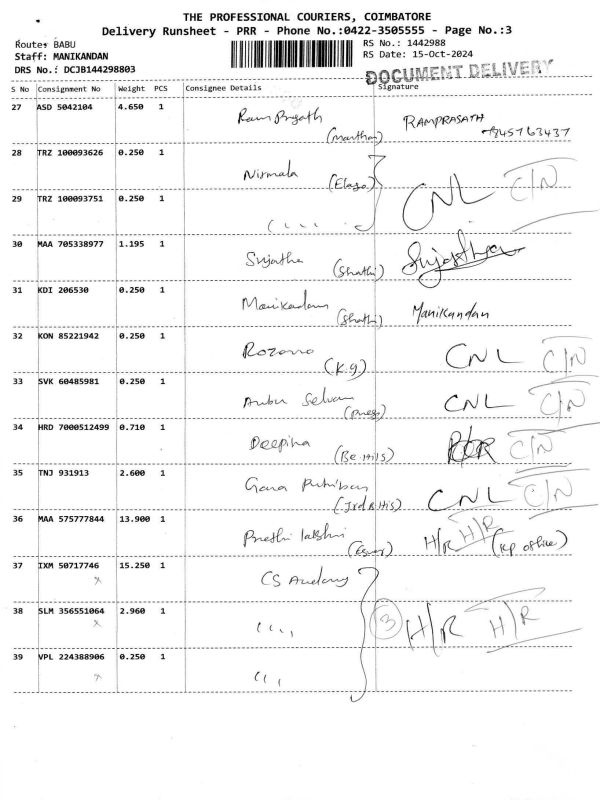 THE PROFESSIONAL COURIERS, COIMBATORE
Delivery Runsheet - PRR - Phone No.:0422-3505555 - Page No.:3
Route: BABU
RS No.: 1442988
Staff: MANIKANDAN
RS Date: 15-Oct-2024
DRS No.: DCJB144298803
DOCUMENT DELIVERY
S No Consignment No Weight PCS Consignee Details Signature
27 ASD 5042104 4.650 1 Ram Prasath RAMPRASATH
7845763437
28 TRZ 100093626 0.250 1 Nirmala
CNL C/N
29 TRZ 100093751 0.250 1 ,,,,
30 MAA 705338977 1.195 1 Sujatha
(Shathi)
31 KDI 206530 0.250 1 Manikandan Manikandan
(Shathi)
32 KON 85221942 0.250 1 CNL C/N
(K.G)
33 SVK 60485981 0.250 1 Anbu Selvan CNL C/N
34 HRD 7000512499 0.710 1 Deepina C/N
(Be.Hils)
35 TNJ 931913 2.600 1 CNL C/N
36 MAA 575777844 13.900 1 H/R H/R
37 IXM 50717746 15.250 1 CS
x
38 SLM 356551064 2.960 1 ,,,, 3 H/R H/R
x
39 VPL 224388906 0.250 1 ,,,,
x